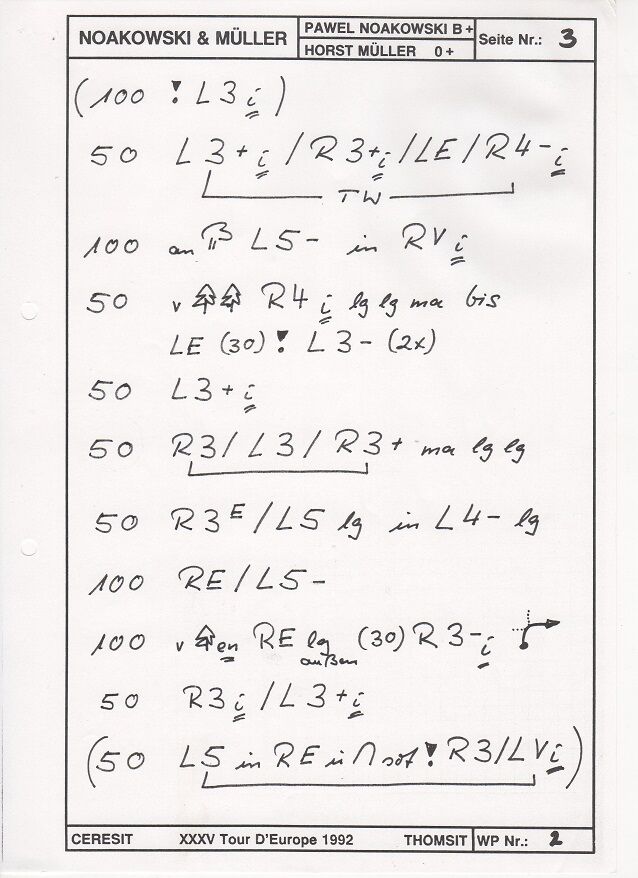 NOAKOWSKI & MÜLLER
PAWEL NOAKOWSKI B+
HORST MÜLLER 0+
Seite Nr.: 3
(100 ! L3 i)
50 L3+ i / R3+ i / LE / R4- i
TW
100 an L5- in RV i
50 v R4 i lg lg ma bis
LE (30) ! L3- (2x)
50 L3+ i
50 R3 / L3 / R3+ ma lg lg
50 R3E / L5 lg in L4- lg
100 RE / L5-
100 v en RE lg (30) R3- i
außen
50 R3 i / L3+ i
(50 L5 in RE ü ∩ sof ! R3 / LV i)
CERESIT XXXV Tour D'Europe 1992 THOMSIT WP Nr.: 2